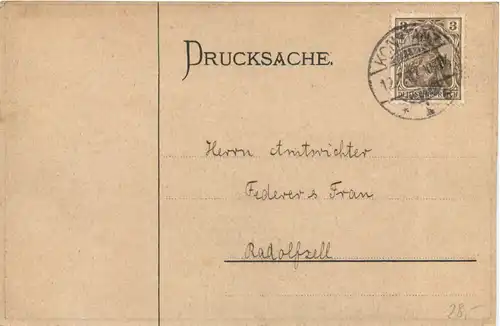 DRUCKSACHE.
3 3
KONSTANZ
Herrn Amtrichter
Federer & Frau
Radolfzell
28,-